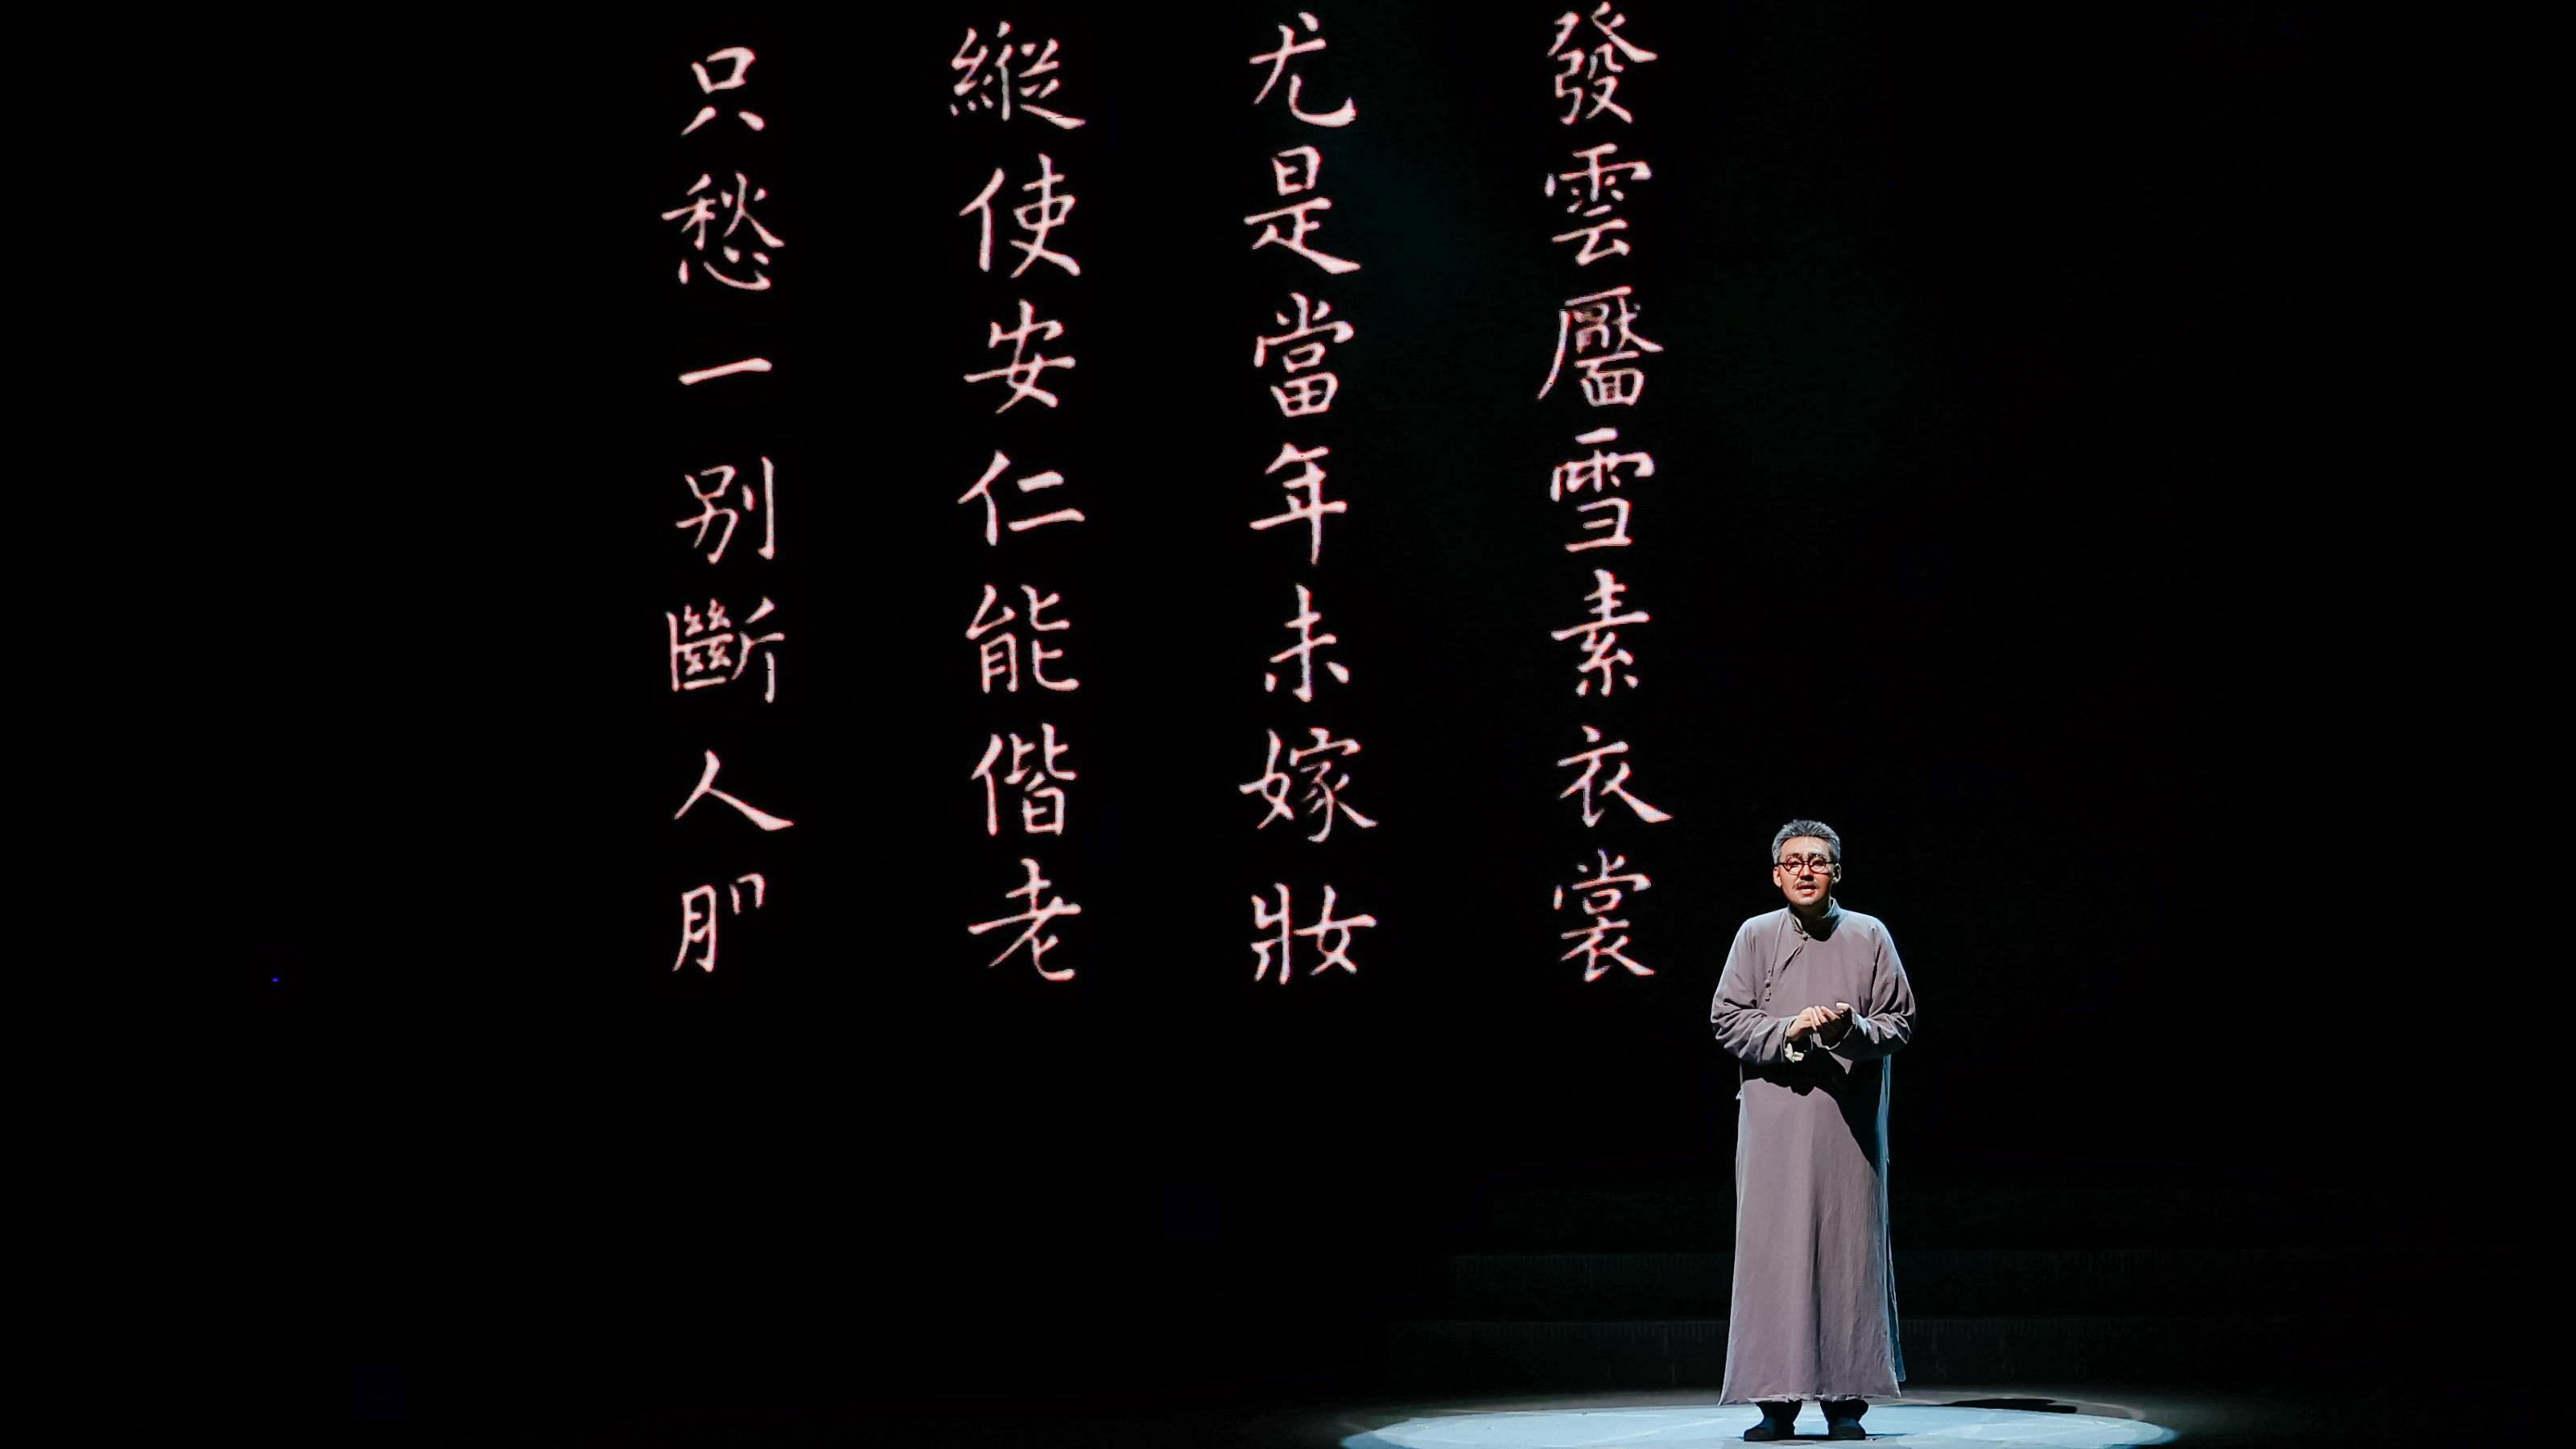 發雲靨雪素衣裳
尤是當年未嫁妝
縱使安仁能偕老
只愁一別斷人